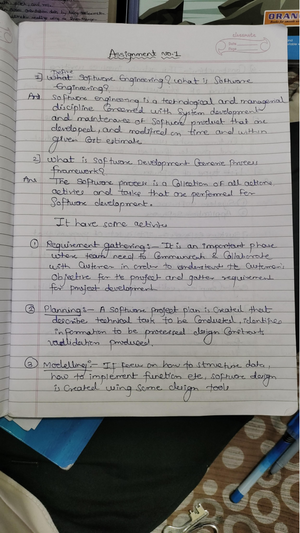 BRAN
Assignment no.1
Define
1) what Software Engineering? what is Software
Engineering?
Ans Software engineering is a technological and managerial
discipline Concerned with System development
and maintenance of Software product that are
developed, and modified on time and within
given Cost estimate
2) what is software Development Generic Process
framework?
Ans The Software process is a Collection of all actions
activities and tasks that are performed For
Software development.
It have some activities
① Requirement gathering:- It is an important phase
where team need to Communicate & Collaborate
with Customer in order to understand the Customer's
Objective for the project and gather requirement
for project development
② Planning:- A software project plan is Created that
describes technical task to be Conducted, identifies
information to be processed design Constraints
validation produced.
③ Modelling:- It focus on how to structure data,
how to implement function etc, software design
is Created using some design tools